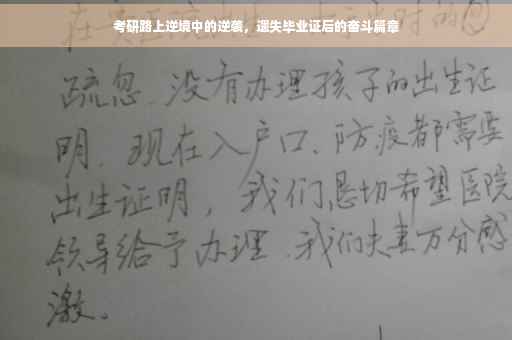 考研路上逆境中的逆袭，遗失毕业证后的奋斗篇章
在 时的
疏忽、没有办理孩子的出生证
明、现在入户口、防疫都需要
出生证明，我们恳切希望医院
领导给予办理、我们夫妻万分感
激。